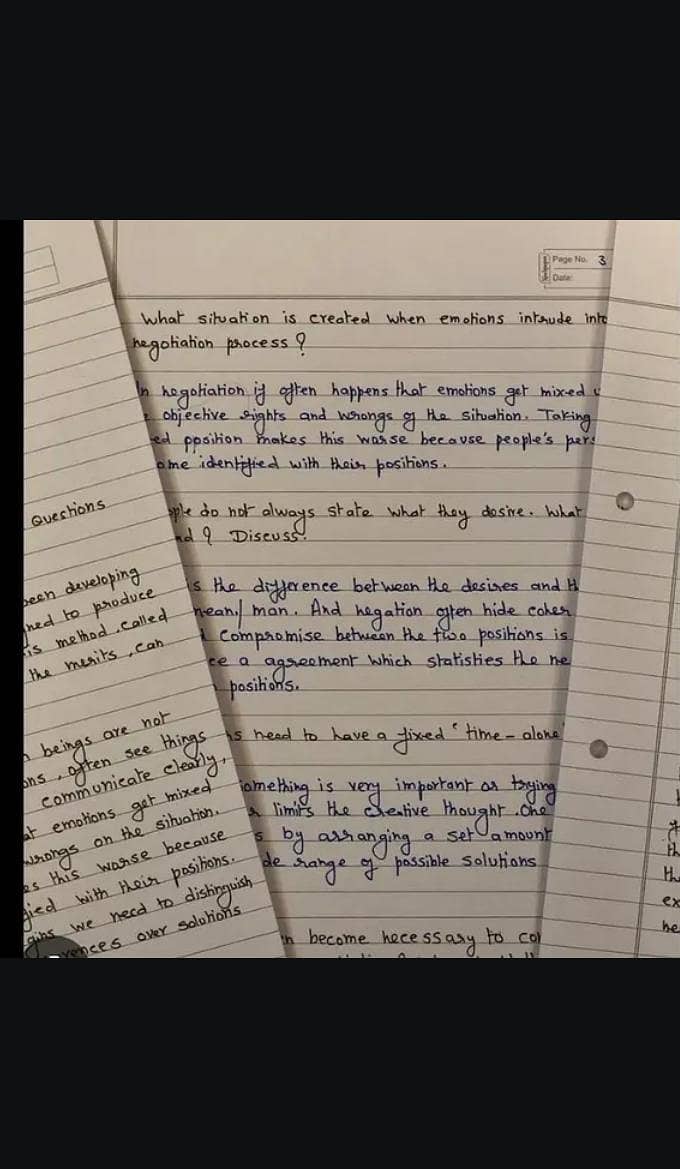 Page No. 3
Date:
What situation is created when emotions intrude into
negotiation process ?
In negotiation if often happens that emotions get mixed
objective rights and wrongs of the situation. Taking
ed ppsition makes this worse because people's pers
ome identified with their positions.
ple do not always state what they desire. What
nd ? Discuss.
is the difference between the desires and th
mean/man. And negation often hide
compromise between the two positions is
ce a agreement which statisties the ne
positions.
ns need to have a fixed ' time - alone
something is very important as trying
limits the creative thought. One
s by arranging a set amount
de range of possible solutions
become necessary to col
Questions
been developing
ned to produce
is method called
the merits, can
beings are not
ons, often see things
communicate clearly,
at emotions get mixed
wrongs on the situation.
es this worse because
fied with their positions.
gins we need to distinguish
rences over solutions
th
the
ex
he